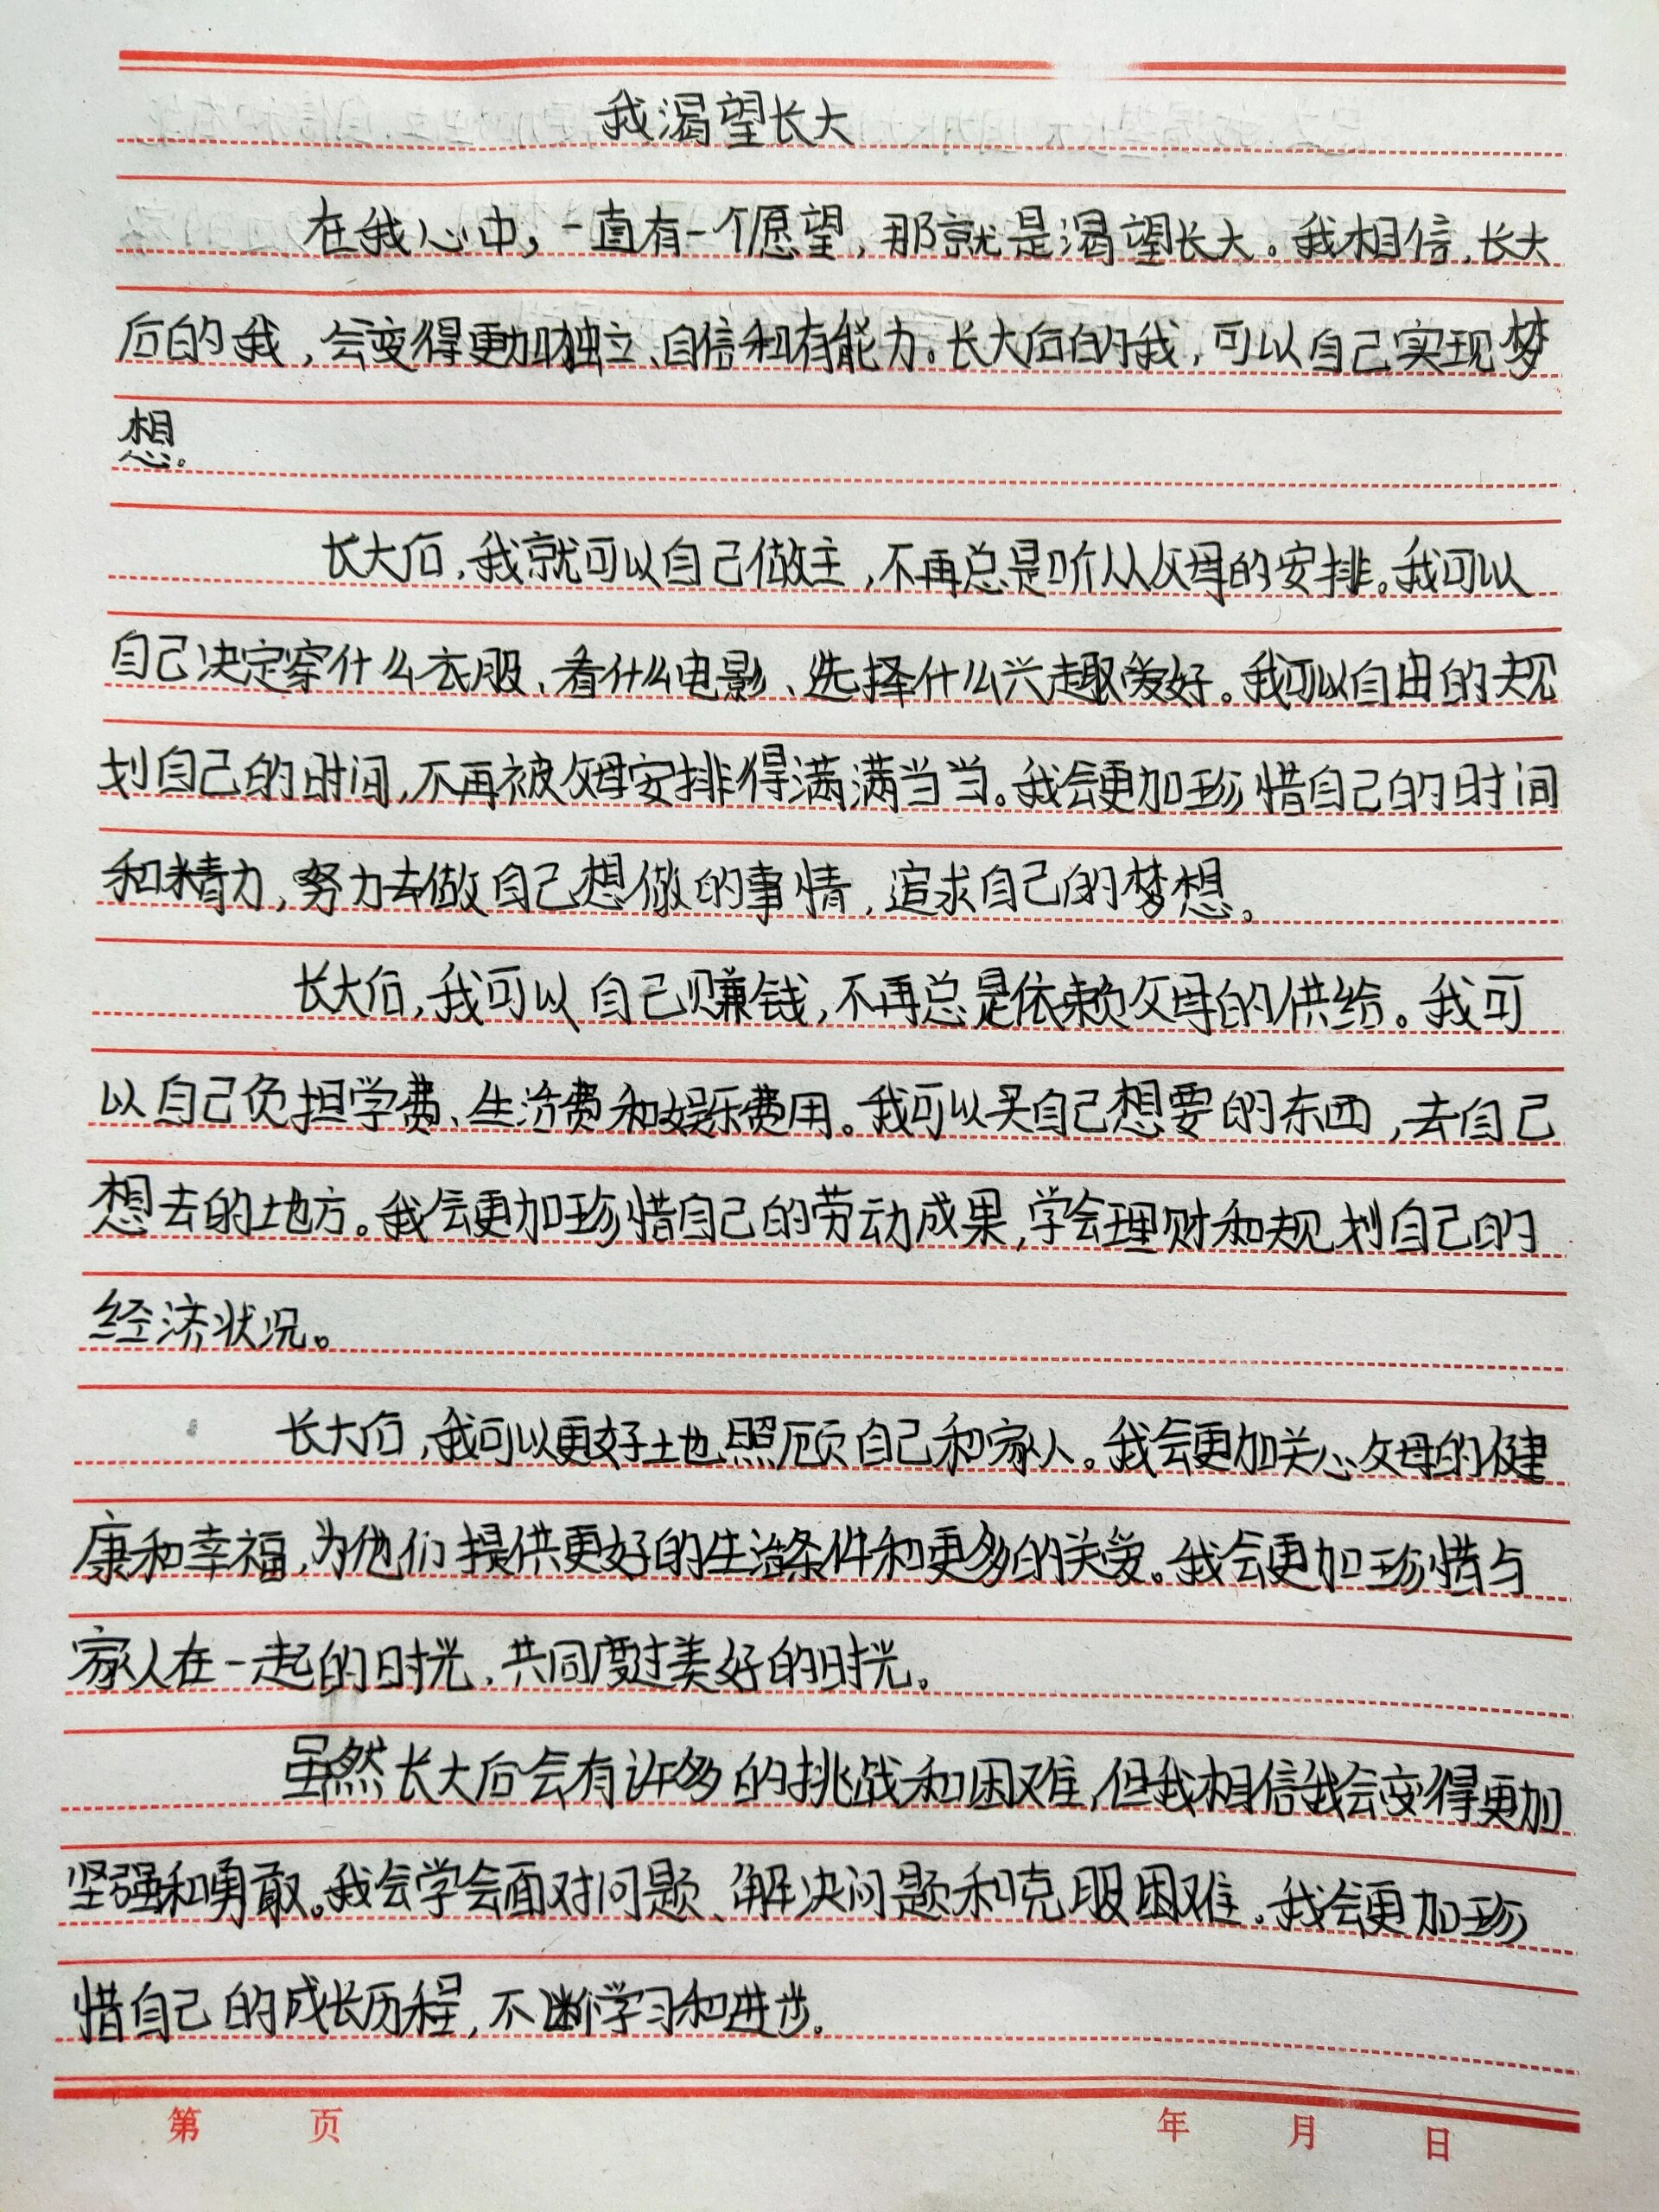 我渴望长大
在我心中，一直有一个愿望，那就是渴望长大。我相信，长大
后的我，会变得更加独立、自信和有能力。长大后的我，可以自己实现梦
想。
长大后，我就可以自己做主，不再总是听从父母的安排。我可以
自己决定穿什么衣服、看什么电影、选择什么兴趣爱好。我可以自由的规
划自己的时间，不再被父母安排得满满当当。我会更加珍惜自己的时间
和精力，努力去做自己想做的事情，追求自己的梦想。
长大后，我可以自己赚钱，不再总是依赖父母的供给。我可
以自己负担学费、生活费和娱乐费用。我可以买自己想要的东西，去自己
想去的地方。我会更加珍惜自己的劳动成果，学会理财和规划自己的
经济状况。
长大后，我可以更好地照顾自己和家人。我会更加关心父母的健
康和幸福，为他们提供更好的生活条件和更多的关爱。我会更加珍惜与
家人在一起的时光，共同度过美好的时光。
虽然长大后会有许多的挑战和困难，但我相信我会变得更加
坚强和勇敢。我会学会面对问题、解决问题和克服困难。我会更加珍
惜自己的成长历程，不断学习和进步。
第 页 年 月 日